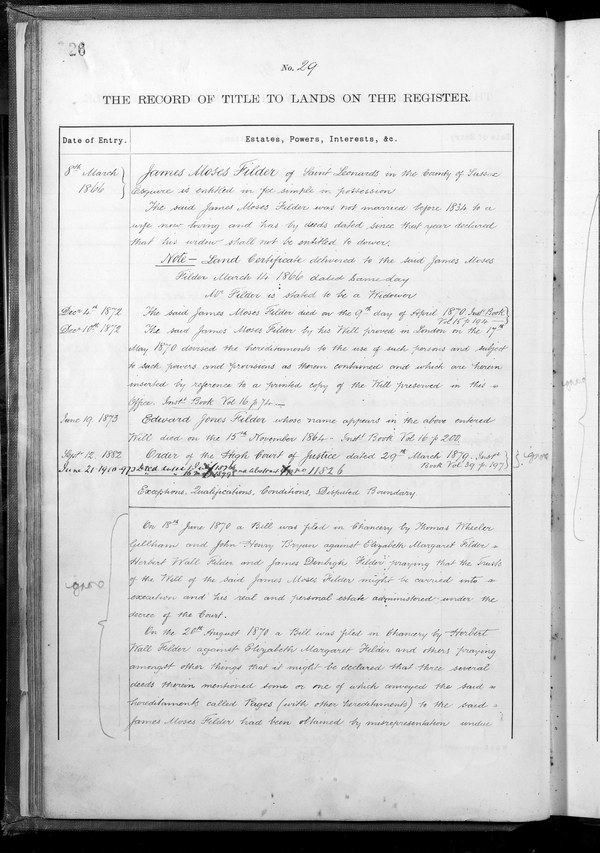 26
No. 29
THE RECORD OF TITLE TO LANDS ON THE REGISTER.
Date of Entry. Estates, Powers, Interests, &c.
8th March 1866 James Moses Filder of Saint Leonards in the County of Sussex
Esquire is entitled in fee simple in possession
The said James Moses Filder was not married before 1834 to a
wife now living and has by deeds dated since that year declared
that his widow shall not be entitled to dower.
Note – Land Certificate delivered to the said James Moses
Filder March 14 1866 dated same day
Mr Filder is stated to be a Widower
Decr 4th 1872 The said James Moses Filder died on the 9th day of April 1870 Inst Book Vol 16 p 194
Decr 10th 1872 The said James Moses Filder by his Will proved in London on the 17th
May 1870 devised the hereditaments to the use of such persons and subject
to such powers and provisions as therein contained and which are herein
inserted by reference to a printed copy of the Will preserved in this
Office. Inst. Book Vol 16 p 74
June 19 1873 Edward Jones Filder whose name appears in the above entered
Will died on the 15th November 1864 – Inst. Book Vol 16 p 200
Sept 12. 1882 Order of the High Court of Justice dated 29th March 1879. Inst. Book Vol 39 p 197
June 21 1910 11826
Exceptions, Qualifications, Conditions, Disputed Boundary.
On 18th June 1870 a Bill was filed in Chancery by Thomas Wheeler
Gillham and John Henry Bryan against Elizabeth Margaret Filder
Herbert Wall Filder and James Denbigh Filder praying that the Trusts
of the Will of the said James Moses Filder might be carried into
execution and his real and personal estate administered under the
decree of the Court.
On the 20th August 1870 a Bill was filed in Chancery by Herbert
Wall Filder against Elizabeth Margaret Filder and others praying
amongst other things that it might be declared that three several
deeds therein mentioned some or one of which conveyed the said
hereditaments called Pages (with other hereditaments) to the said
James Moses Filder had been obtained by misrepresentation undue